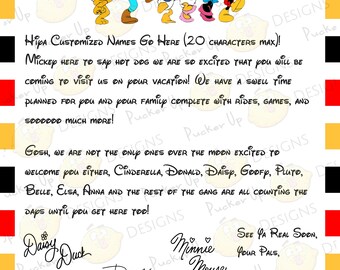 Hiya Customized Names Go Here (20 characters max)!
Mickey here to say hot dog we are so excited that you will be
coming to visit us on your vacation! We have a swell time
planned for you and your family complete with rides, games, and
soooooo much more!
Gosh, we are not the only ones over the moon excited to
welcome you either, Cinderella, Donald, Daisy, Goofy, Pluto,
Belle, Elsa, Anna and the rest of the gang are all counting the
days until you get here too!
See Ya Real Soon,
Your Pals,
Daisy
Duck
Minnie
Mouse
Pucker Up
DESIGNS